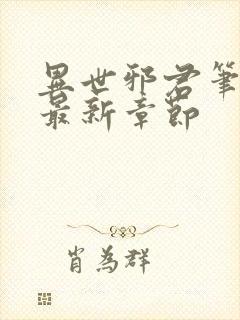 異世邪君筆
最新章節
肖為群